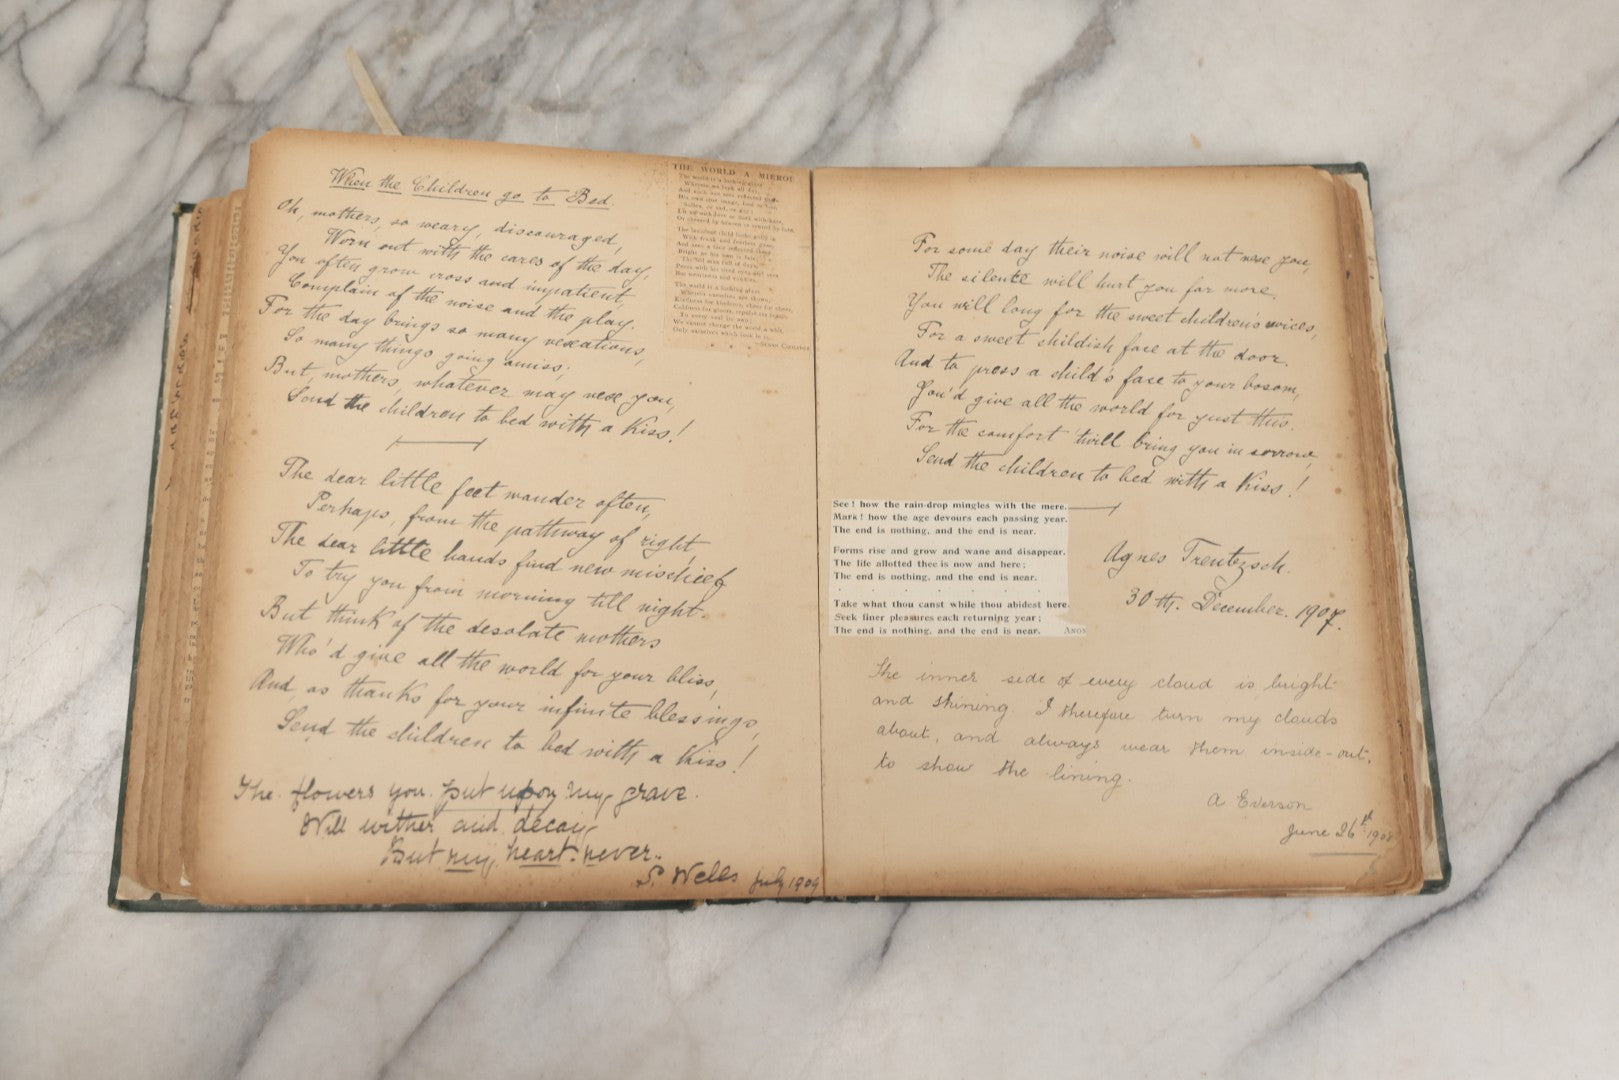 When the Children go to Bed.
Oh, mothers, so weary, discouraged,
Worn out with the cares of the day,
You often grow cross and impatient,
Complain of the noise and the play.
For the day brings so many vexations,
So many things going amiss;
But, mothers, whatever may vex you,
Send the children to bed with a Kiss!
The dear little feet wander often,
Perhaps, from the pathway of right,
The dear little hands find new mischief
To try you from morning till night.
But think of the desolate mothers
Who'd give all the world for your bliss,
And as thanks for your infinite blessings,
Send the children to bed with a Kiss!
The flowers you put upon my grave.
Will wither and decay
But my heart never.
S. Wells July 1909
THE WORLD A MIRROR
The world is a looking-glass
Wherein we look all day,
And each one sees reflected
The world is a looking-glass
We cannot change the world a whit,
Only ourselves which look in it.
For some day their noise will not vex you,
The silence will hurt you far more,
You will long for the sweet children's voices,
For a sweet childish face at the door.
And to press a child's face to your bosom,
You'd give all the world for just this.
For the comfort 'twill bring you in sorrow,
Send the children to bed with a Kiss!
See! how the rain-drop mingles with the mere.
Mark! how the age devours each passing year.
The end is nothing, and the end is near.
Forms rise and grow and wane and disappear.
The life allotted thee is now and here;
The end is nothing, and the end is near.
Take what thou canst while thou abidest here.
Seek finer pleasures each returning year;
The end is nothing, and the end is near. ANON
Agnes Trentzsch.
30th. December. 1907.
The inner side of every cloud is bright
and shining. I therefore turn my clouds
about, and always wear them inside-out,
to show the lining.
A Everson
June 26th 1908